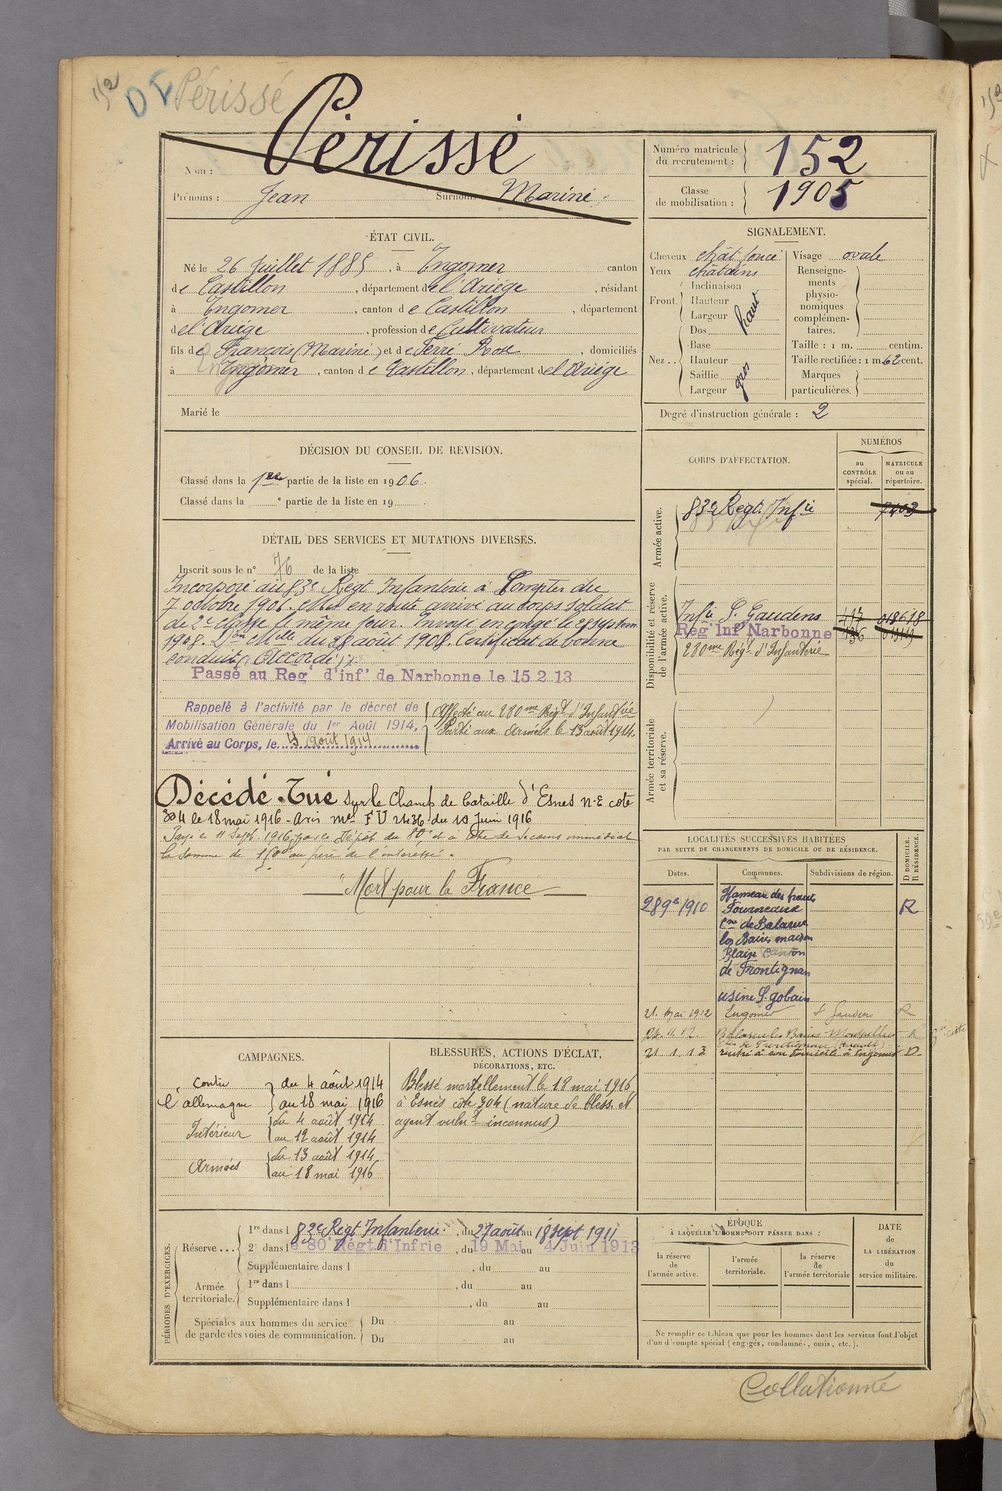 152 DE Périssé
Périssé
Nom :
Prénoms : Jean Surnoms Mariné
Numéro matricule du recrutement : 152
Classe de mobilisation : 1905
ÉTAT CIVIL.
Né le 26 Juillet 1885, à Engomer canton
de Castillon, département de l'Ariège, résidant
à Engomer, canton de Castillon, département
de l'Ariège, profession de Cultivateur
fils de François (Mariné) et de Ferré Rose, domiciliés
à Engomer, canton de Castillon, département de l'Ariège
Marié le
SIGNALEMENT.
Cheveux chât foncé
Yeux châtains
Front. Inclinaison
Hauteur
Largeur haut
Nez .. Dos
Base
Hauteur
Saillie
Largeur gros
Visage ovale
Renseignements physionomiques complémentaires.
Taille : 1 m. centim.
Taille rectifiée : 1 m 62 cent.
Marques particulières.
Degré d'instruction générale : 2
DÉCISION DU CONSEIL DE REVISION.
Classé dans la 1re partie de la liste en 1906.
Classé dans la e partie de la liste en 19
DÉTAIL DES SERVICES ET MUTATIONS DIVERSES.
Inscrit sous le n° 76 de la liste
Incorporé au 83e Regt Infanterie à Compter du
7 octobre 1906. Mis en route arrivé au corps soldat
de 2e classe le même jour. Envoyé en congé le 25 septem
1908. Don Mlle du 28 août 1908. Certificat de bonne
conduite Accordé
Passé au Reg' d'inf' de Narbonne le 15 2 13
Rappelé à l'activité par le décret de
Mobilisation Générale du 1er Août 1914,
Arrivé au Corps, le 4 Août 1914
Affecté au 280me Regt d'Infanterie
Parti aux Armées le 13 août 1914.
Décédé. Tué sur le Champ de bataille d'Esnes N-E cote
304 le 18 mai 1916 - Avis Mel FU 2436 du 10 Juin 1916
Payé le 11 Sept. 1916 par le Dépôt du 80e et à titre de secours immédiat
la somme de 150 au père de l'intéressé.
"Mort pour la France"
CORPS D'AFFECTATION.
NUMÉROS
au CONTRÔLE spécial.
MATRICULE ou au répertoire.
Armée active.
83e Regt Infie 7403
Disponibilité et réserve de l'armée active.
Infie St Gaudens 417
Reg' inf Narbonne 136
280me Régt d'Infanterie
Armée territoriale et sa réserve.
LOCALITÉS SUCCESSIVES HABITÉES
PAR SUITE DE CHANGEMENTS DE DOMICILE OU DE RÉSIDENCE.
Dates. Communes. Subdivisions de région. D DOMICILE. R RÉSIDENCE.
1910 Hameau des hauts R
Fourneaux
Cne de Balaruc
les Bains maison
Blaise Canton
de Frontignan
usine St gobain
21 Mai 1912 Engomer St Gaudens R
24.11.12 Balaruc les Bains Montpellier R
Con de Frontignan (Hérault)
21.1.13 rentré à son domicile à Engomer D
CAMPAGNES.
Contre l'allemagne du 4 août 1914
au 18 mai 1916
Intérieur du 4 août 1914
au 12 août 1914
Armées du 13 août 1914
au 18 mai 1916
BLESSURES, ACTIONS D'ÉCLAT,
DÉCORATIONS, ETC.
Blessé mortellement le 18 mai 1916
à Esnes côte 304 (nature de bless. et
agent vulnt inconnus)
PÉRIODES D'EXERCICES.
Réserve ... 1re dans l 83e Regt Infanterie, du 27 août au 18 sept 1911
2e dans l e 80e Régt d'Infrie, du 19 Mai au 4 Juin 1913
Supplémentaire dans l , du au
Armée territoriale. 1re dans l , du au
Supplémentaire dans l , du au
Spéciales aux hommes du service de garde des voies de communication. Du au
Du au
ÉPOQUE
À LAQUELLE L'HOMME DOIT PASSER DANS :
la réserve de l'armée active.
l'armée territoriale.
la réserve de l'armée territoriale
DATE de LA LIBÉRATION du service militaire.
Ne remplir ce tableau que pour les hommes dont les services font l'objet
d'un décompte spécial (engagés, condamnés, omis, etc.).
Collationné